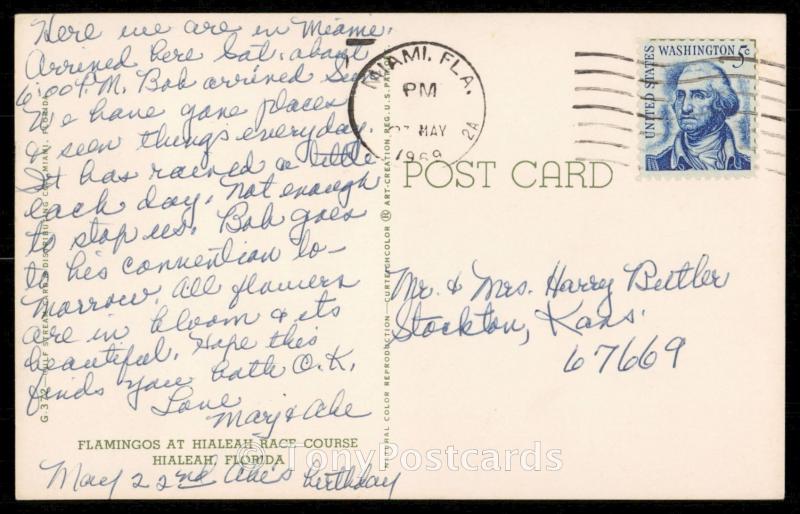 Here we are in Miami.
Arrived here Sat. about
6:00 P.M. Bob arrived Sun
We have gone places
& seen things everyday.
It has rained a little
each day. Not enough
to stop us. Bob goes
to his convention to-
morrow. All flowers
are in bloom & its
beautiful. Hope this
finds you both O.K.
Love
Marj & Abe
FLAMINGOS AT HIALEAH RACE COURSE
HIALEAH, FLORIDA
May 22nd Abe's birthday
G-372—GULF STREAM CARD & DISTRIBUTING CO., MIAMI, FLORIDA
NATURAL COLOR REPRODUCTION—CURTEICHCOLOR ® ART-CREATION REG. U.S. PAT.
MIAMI, FLA.
PM
MAY
1969
2A
UNITED STATES
WASHINGTON 5c
POST CARD
Mr. & Mrs. Harry Butler
Stockton, Kans.
67669
© TonyPostcards